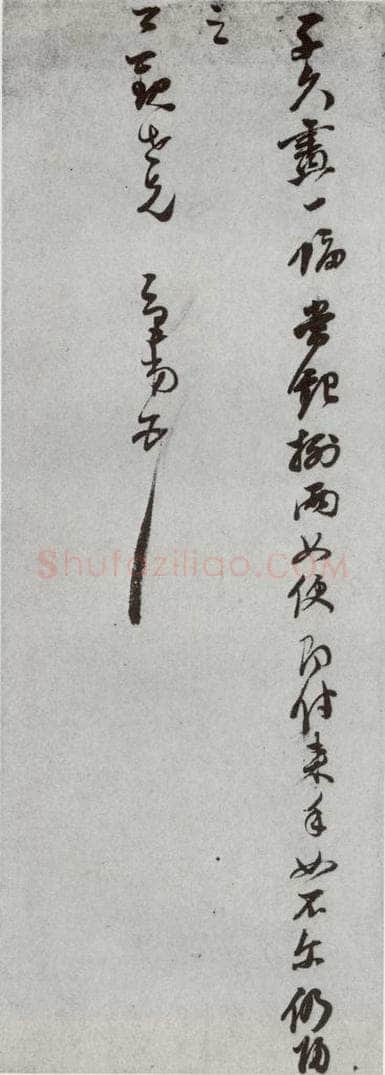 子久畫一幅銀捌兩如便即付来手如不尔仍歸
之
公觀兄
Shufaziliao.COM